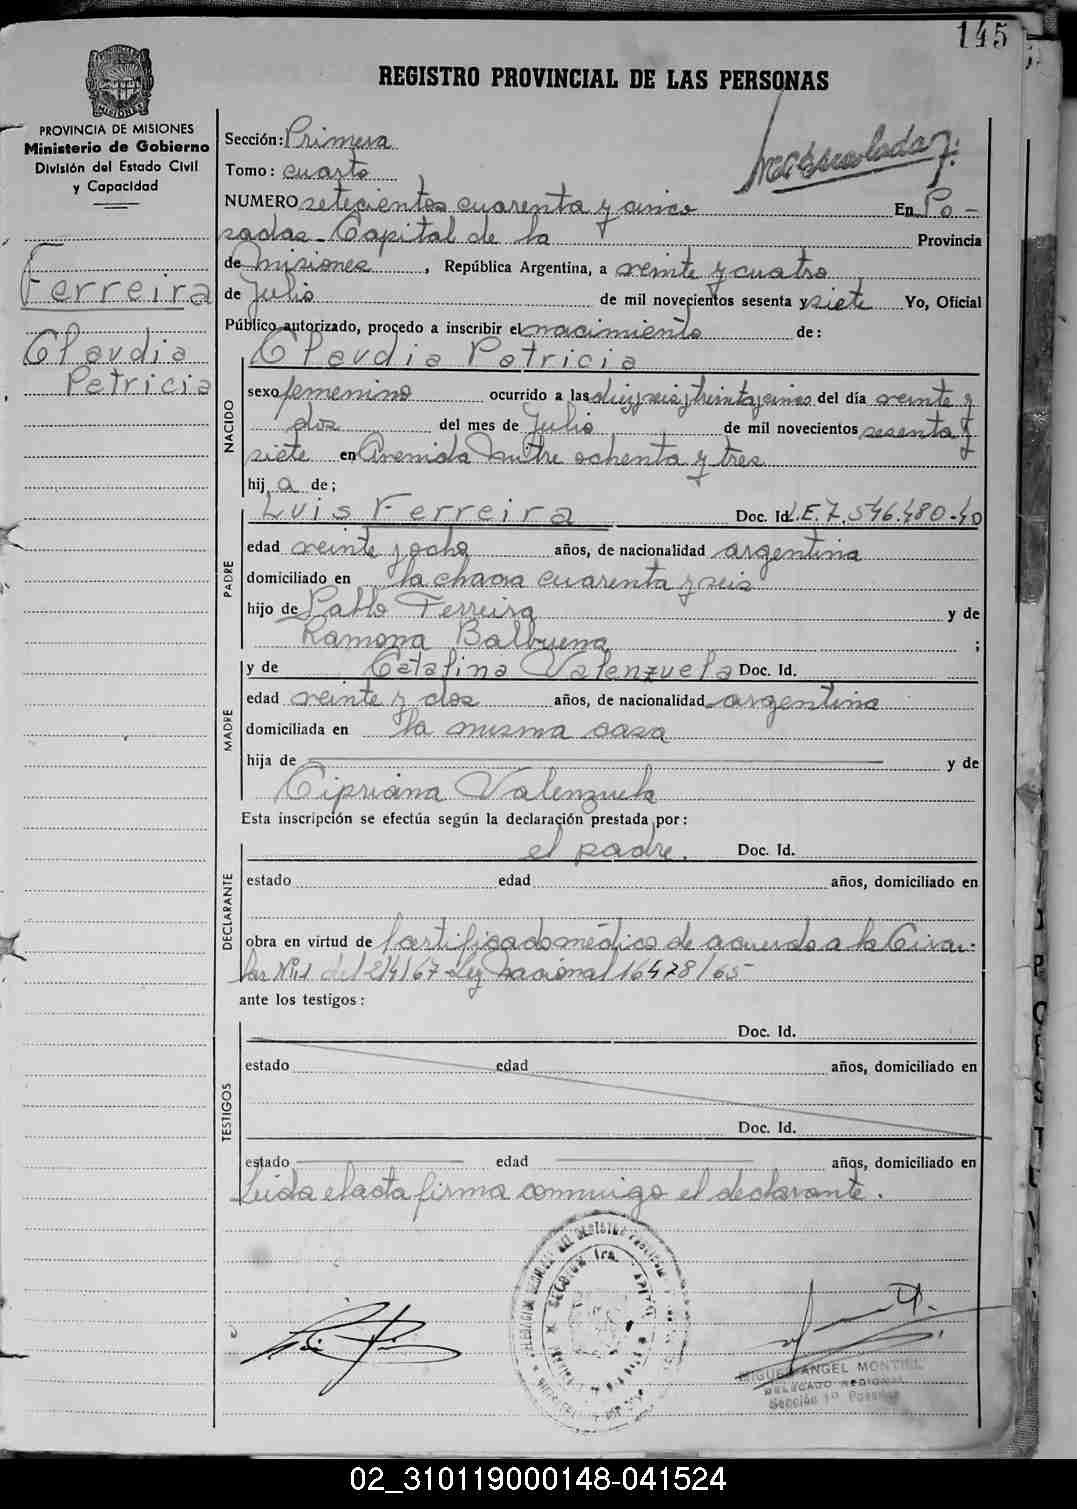 145
REGISTRO PROVINCIAL DE LAS PERSONAS
PROVINCIA DE MISIONES
Ministerio de Gobierno
División del Estado Civil
y Capacidad
Sección: Primera
Tomo: cuarto
NUMERO setecientos cuarenta y cinco En Po-
sadas - Capital de la Provincia
de Misiones, República Argentina, a veinte y cuatro
de Julio de mil novecientos sesenta y siete Yo, Oficial
Público autorizado, procedo a inscribir el nacimiento de:
Ferreira
Claudia
Patricia
NACIDO
Claudia Patricia
sexo femenino ocurrido a las diez y seis y treinta y cinco del día veinte y
dos del mes de Julio de mil novecientos sesenta y
siete en Avenida Mitre ochenta y tres
hij a de;
PADRE
Luis Ferreira Doc. Id. L.E. 7.546.480-40
edad veinte y ocho años, de nacionalidad argentina
domiciliado en la chacra cuarenta y seis
hijo de Pablo Ferreira y de
Ramona Balbuena ;
MADRE
y de Catalina Valenzuela Doc. Id.
edad veinte y dos años, de nacionalidad argentina
domiciliada en la misma casa
hija de y de
Cipriana Valenzuela
Esta inscripción se efectúa según la declaración prestada por:
DECLARANTE
el padre. Doc. Id.
estado edad años, domiciliado en
obra en virtud de certificado médico de acuerdo a la Circu-
lar Nº 11 del 2/4/67 Ley Nacional 16478/65
ante los testigos:
TESTIGOS
Doc. Id.
estado edad años, domiciliado en
Doc. Id.
estado edad años, domiciliado en
Leída el acta firma conmigo el declarante.
MIGUEL ANGEL MONTIEL
DELEGADO REGIONAL
Sección 1º Posadas
02_310119000148-041524